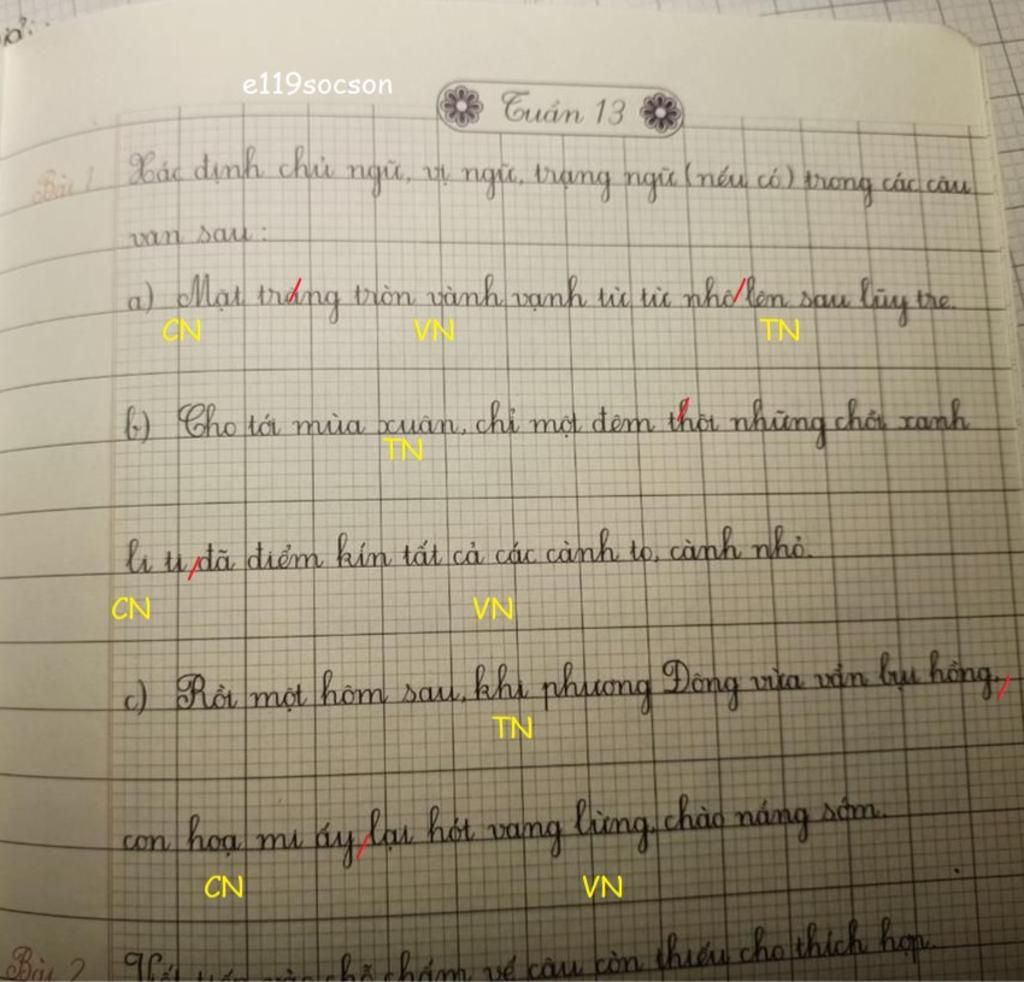 e119socson
Tuần 13
Bài 1 Xác định chủ ngữ, vị ngữ, trạng ngữ (nếu có) trong các câu
văn sau:
a) Mặt trăng tròn vành vạnh từ từ nhô/lên sau lũy tre.
CN VN TN
b) Cho tới mùa xuân, chỉ một đêm thôi những chồi xanh
TN
li ti/đã điểm kín tất cả các cành to, cành nhỏ.
CN VN
c) Rồi một hôm sau, khi phương Đông vừa vẩn bụi hồng,/
TN
con hoạ mi ấy/lại hót vang lừng chào nắng sớm.
CN VN
Bài 2 chỗ chấm vế câu còn thiếu cho thích hợp